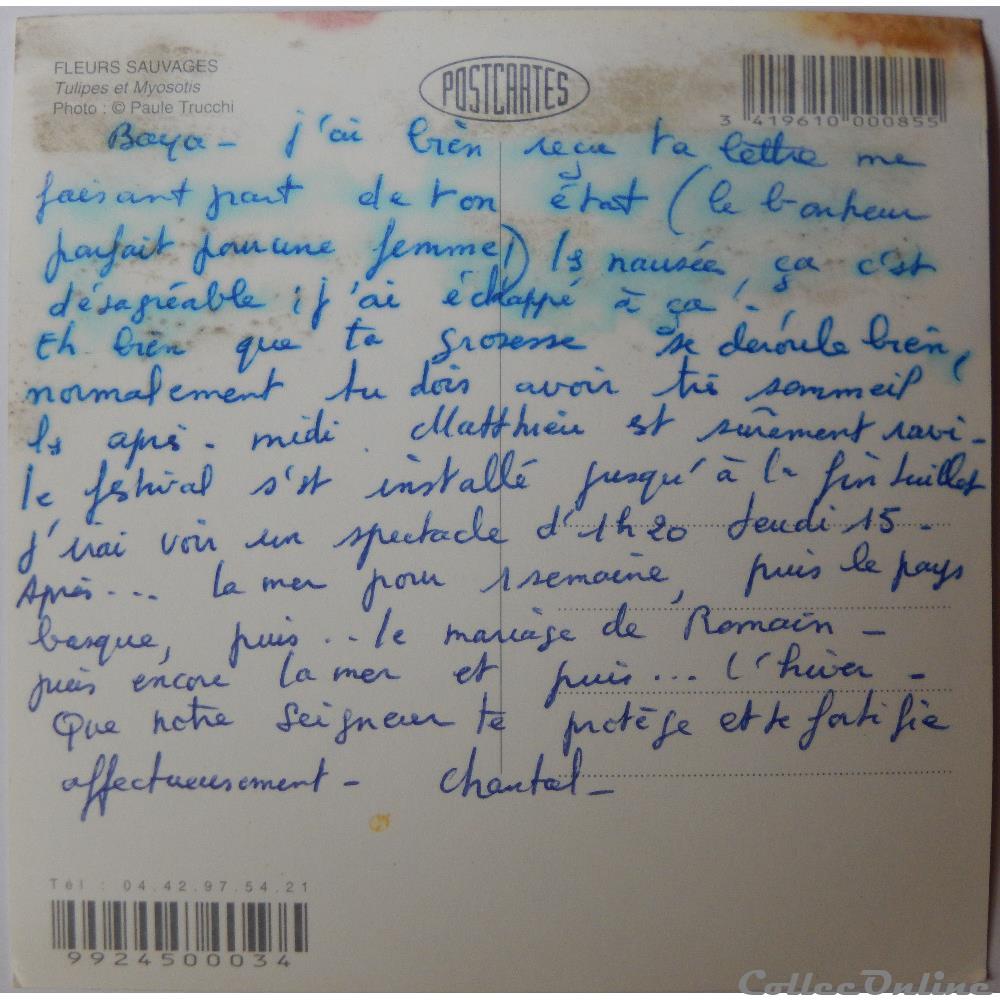 FLEURS SAUVAGES
Tulipes et Myosotis
Photo : © Paule Trucchi
POSTCARTES
3 419610 000855
Baya - j'ai bien reçu ta lettre me
faisant part de ton état (le bonheur
parfait pour une femme!) ls nausée, ça c'est
désagréable ; j'ai échappé à ça !.
Eh bien que ta grosesse se déroule bien,
normalement tu dois avoir trè sommeil
ls aprè-midi. Matthieu est sûrement ravi -
le festival s'st installé jusqu'à la fin Juillet
j'irai voir un spectacle d'1h20 Jeudi 15 -
Après... la mer pour 1 semaine, puis le pays
basque, puis... le mariage de Romain -
puis encore la mer et puis... l'hiver -
Que notre Seigneur te protège et te fortifie
affectueusement - Chantal -
Tél : 04.42.97.54.21
9924500034
CollecOnline